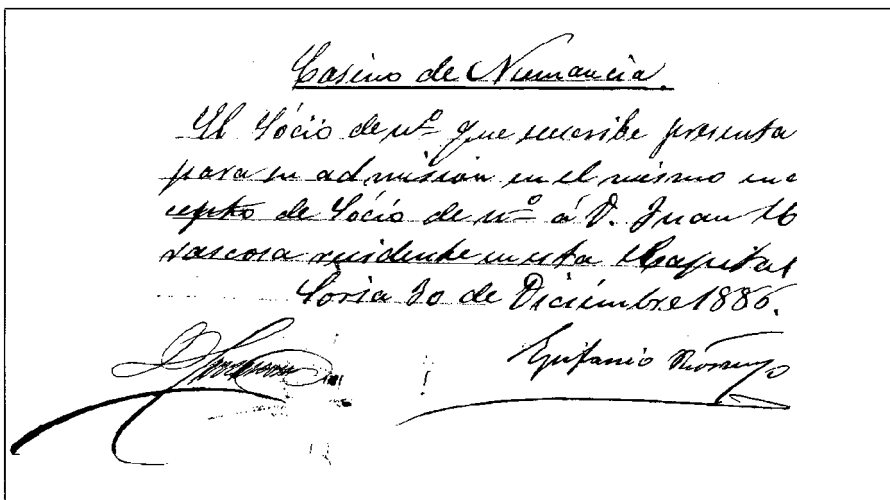 Casino de Numancia.
El Sócio de nº que suscribe presenta
para su admisión en el mismo en c
cepto de Sócio de nº á D. Juan
vascosa residente en esta Capital
Soria 30 de Diciembre 1886.
Epifanio